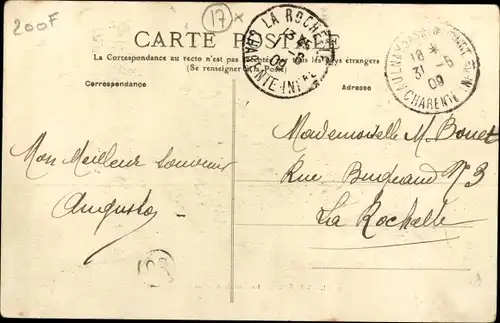 200F
17 x
CARTE POSTALE
La Correspondance au recto n'est pas acceptée par tous les pays étrangers
(Se renseigner à la Poste)
Correspondance
Adresse
LA ROCHELLE
CHARENTE-INFRE
09
18 *
31 -5
09
CHARENTE INFRE
Mademoiselle M. Bouet
Rue Bugeaud N 3
La Rochelle
Mon Meilleur Souvenir
Augusto